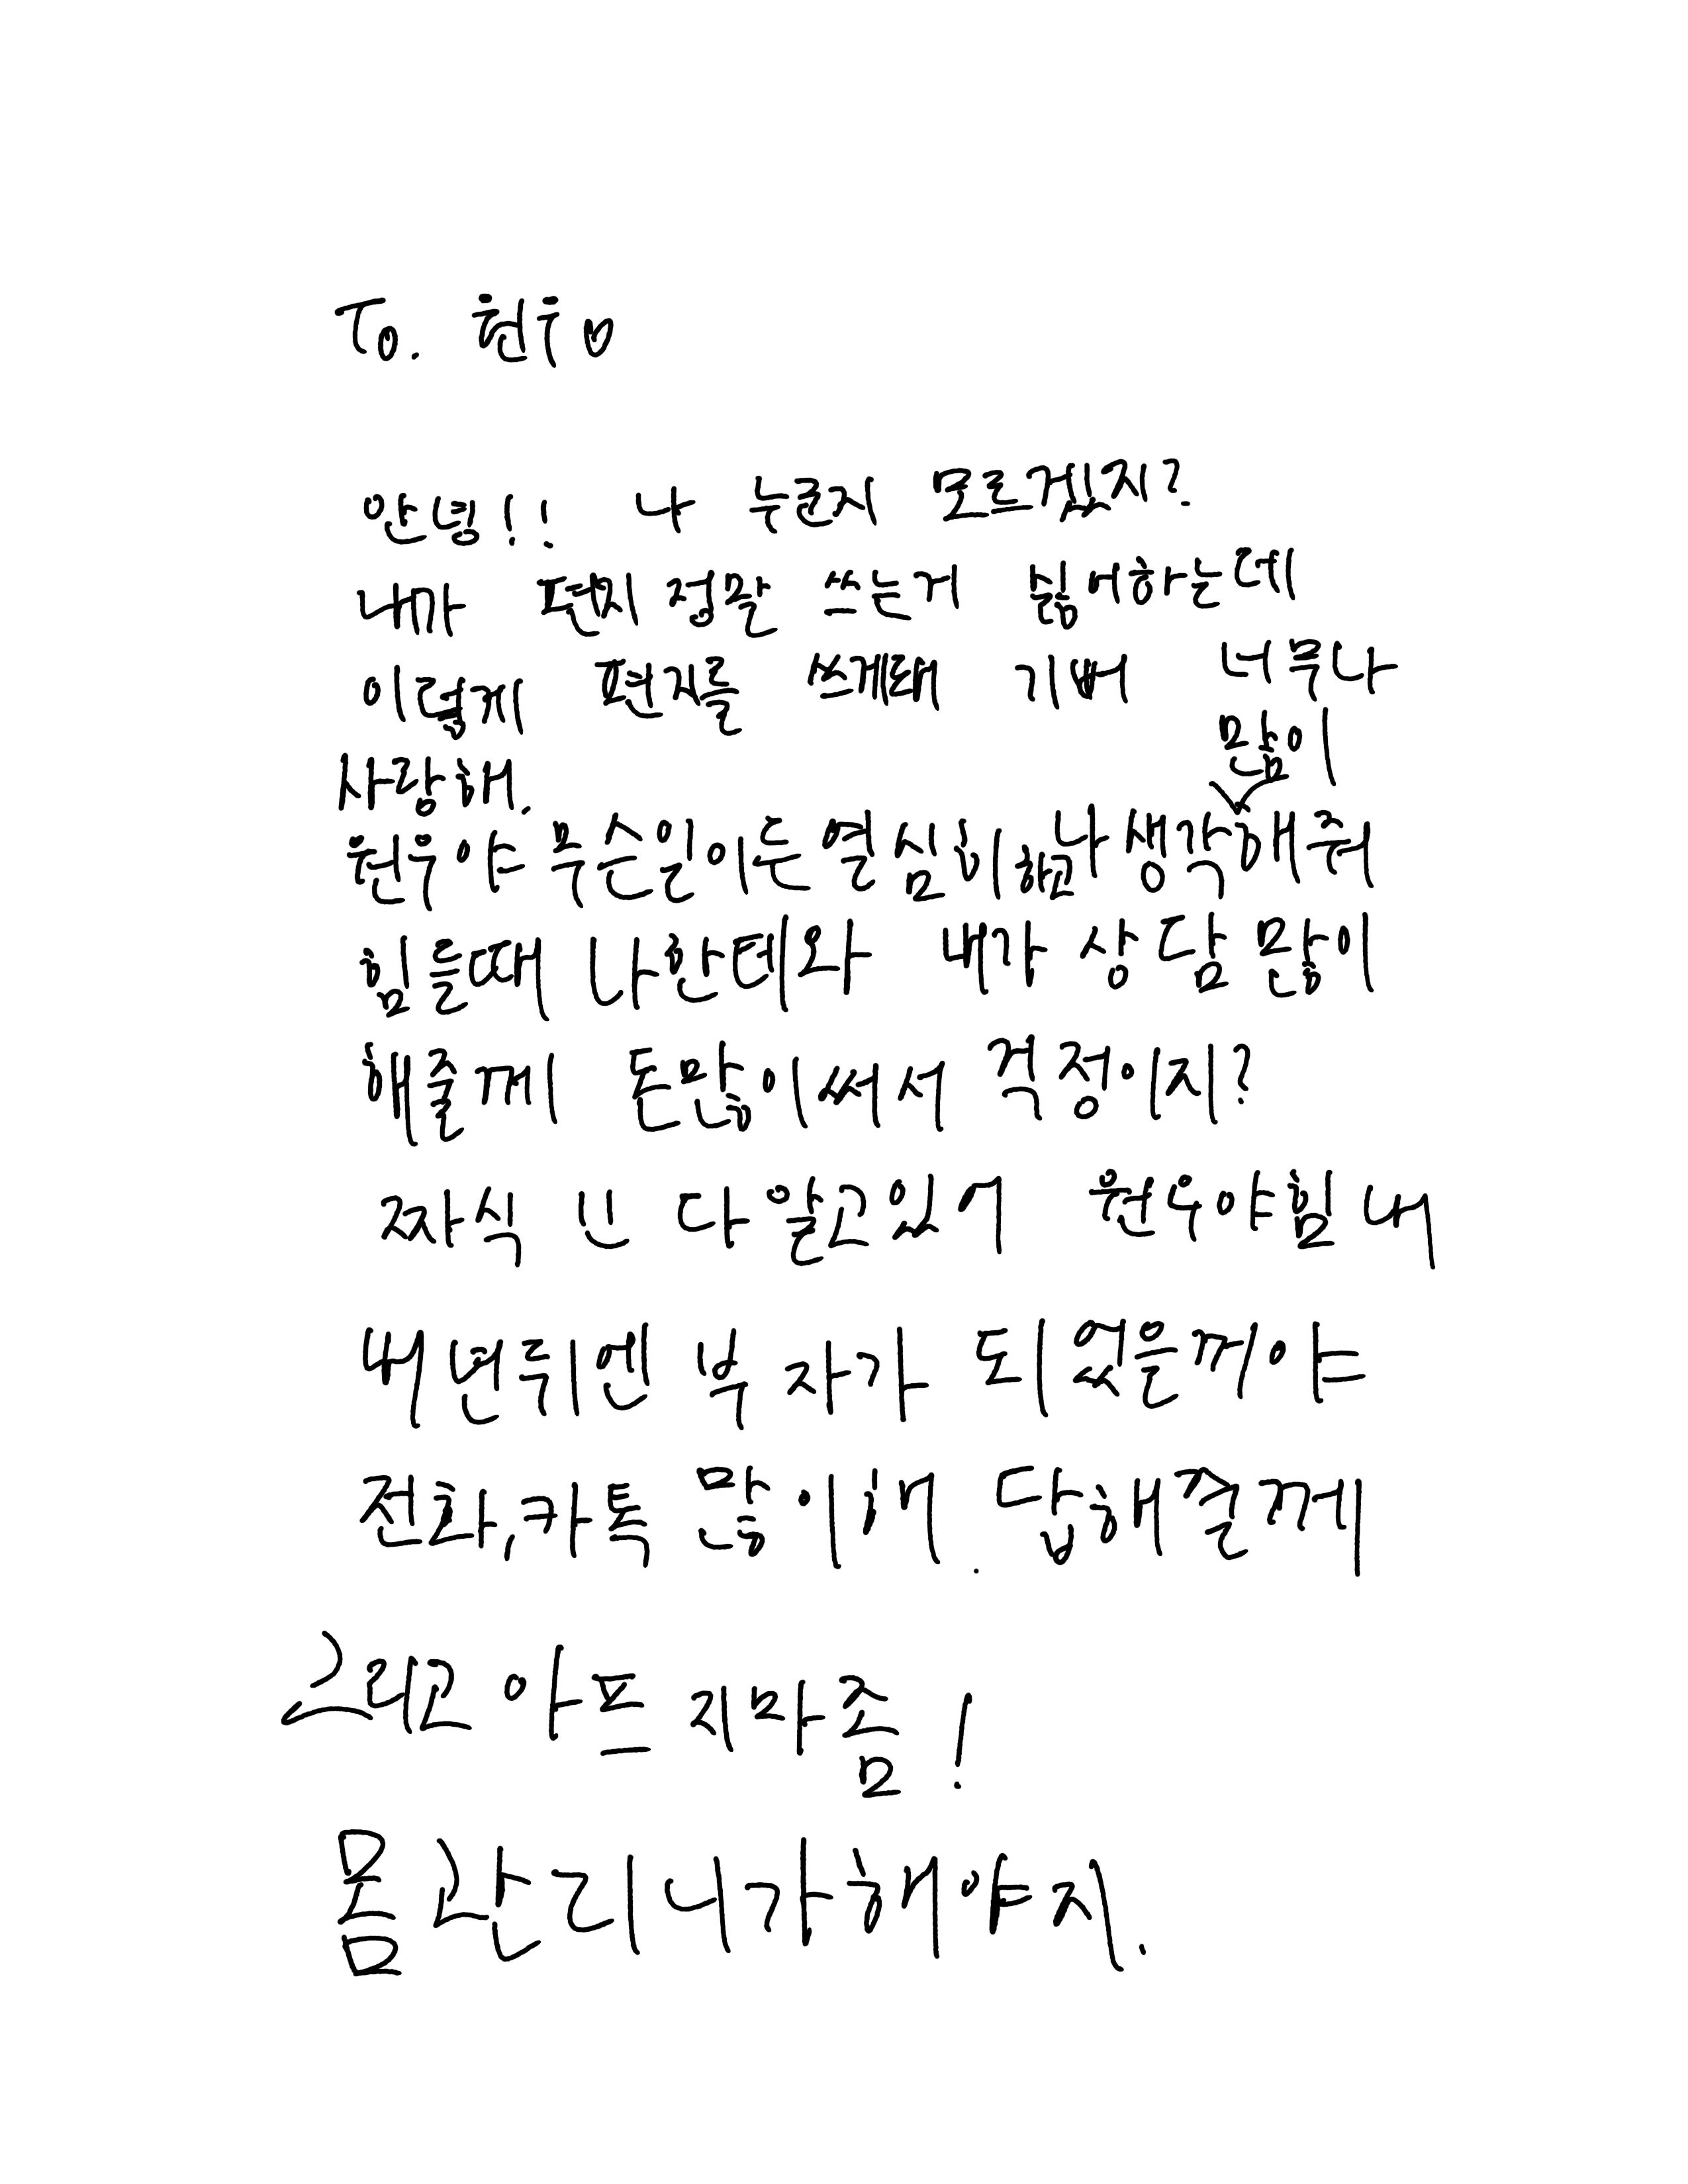 To.
안녕!! 나 누군지 모르겠지?
내가 편지 정말 쓰는거 싫어하는데
이렇게 편지를 쓰게돼 기뻐 너무나
사랑해.
현우야 무슨일이든 열심히하고 나 생각 많이 해줘
힘들때 나한테와 내가 상담 많이
해줄께 돈많이써서 걱정이지?
짜식 다 알고있어 현우야 힘내
내년뒤엔 부자가 되있을꺼야
전화, 카톡 많이해. 답해줄께
그리고 아프지마좀!
몸관리 니가해야지.